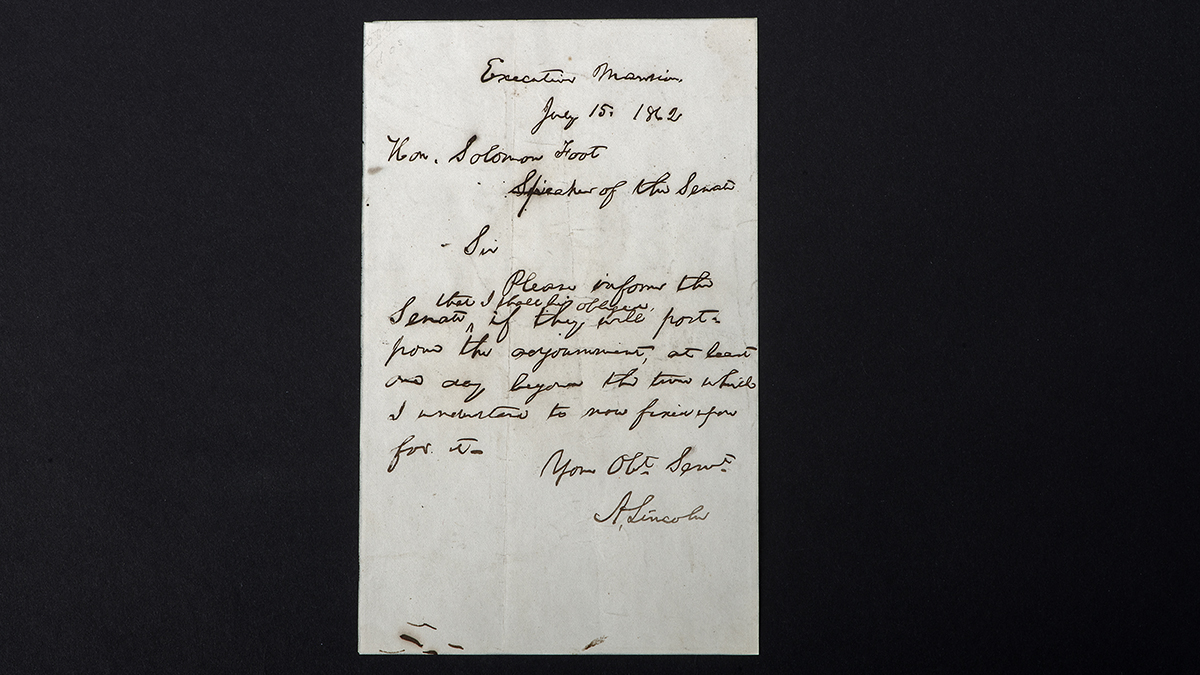 Executive Mansion,
July 15. 1862
Hon. Solomon Foot
Speaker of the Senate
Sir
Please inform the
that I shall be obliged,
Senate, if they will post-
pone the adjournment, at least
one day beyond the time which
I understand to now fixed upon
for it.
Your Obt. Servt.
A. Lincoln